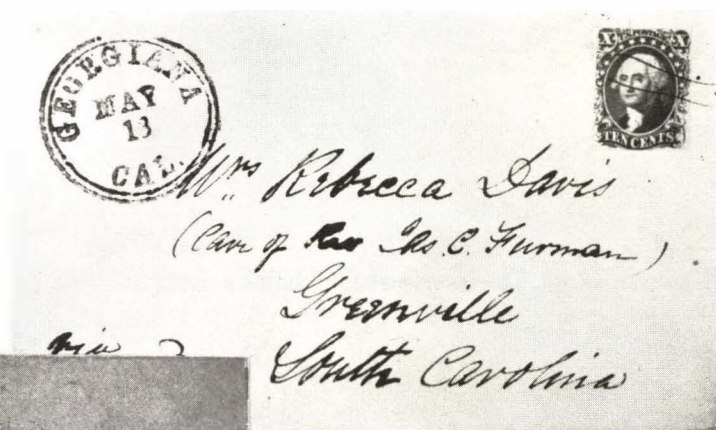 GEORGIANA
MAY
13
CAL.
TEN CENTS
Mrs Rebecca Davis
(Care of Rev Jas. C. Furman)
Greenville
South Carolina
via